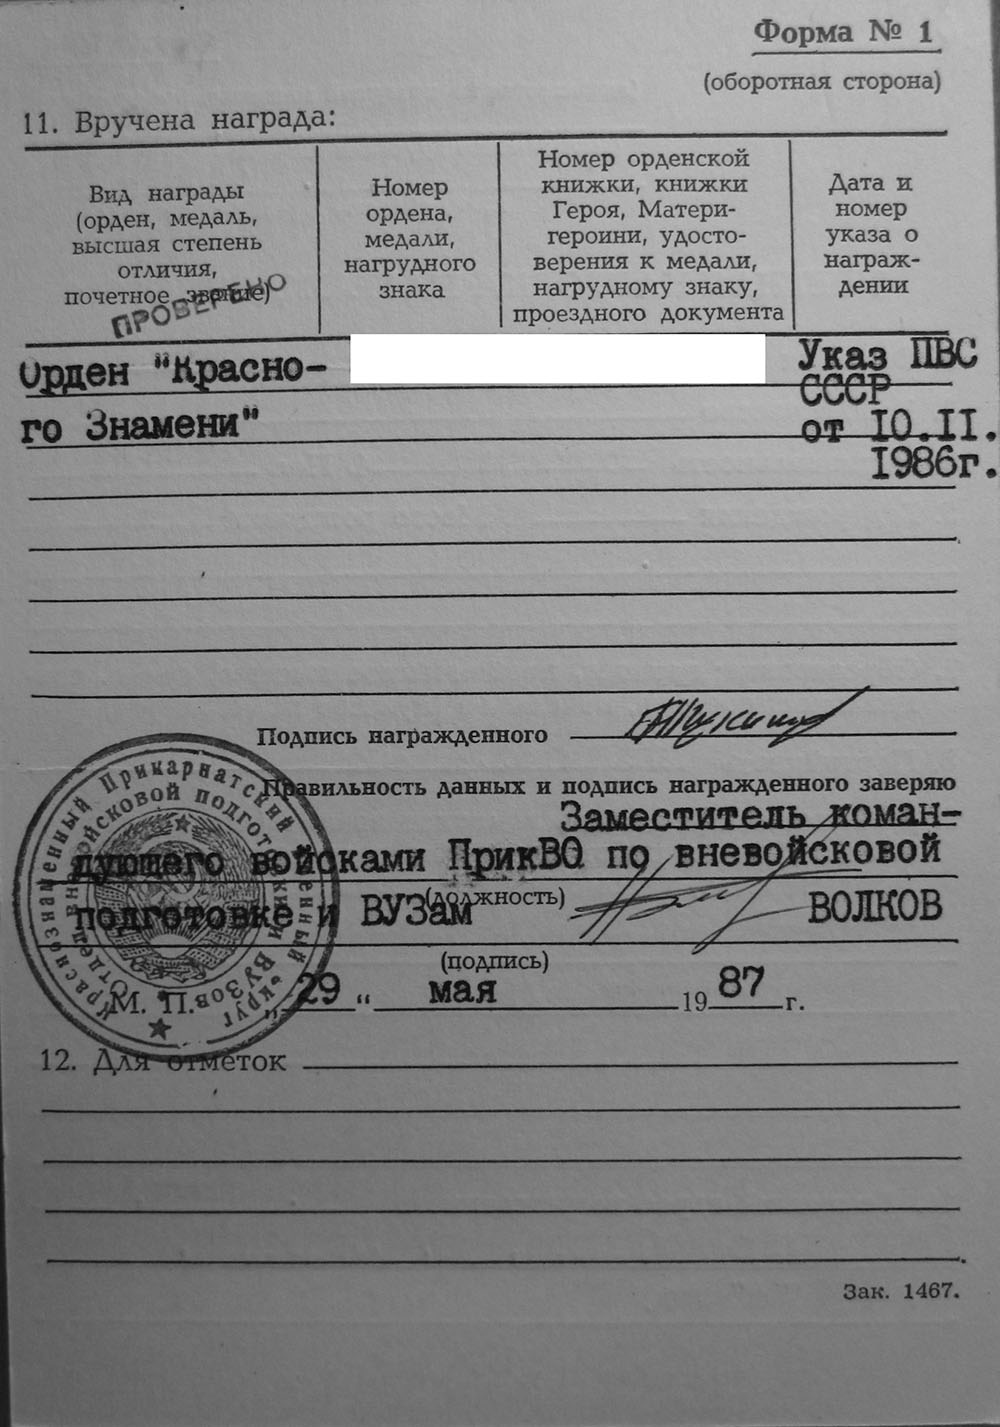 Форма № 1
(оборотная сторона)
11. Вручена награда:
Вид награды
(орден, медаль,
высшая степень
отличия,
почетное звание)
Номер
ордена,
медали,
нагрудного
знака
Номер орденской
книжки, книжки
Героя, Матери-
героини, удосто-
верения к медали,
нагрудному знаку,
проездного документа
Дата и
номер
указа о
награж-
дении
ПРОВЕРЕНО
Орден "Красно-
го Знамени"
Указ ПВС
СССР
от 10.II.
1986г.
Подпись награжденного
Правильность данных и подпись награжденного заверяю
Заместитель коман-
дующего войсками ПрикВО по вневойсковой
(должность)
подготовке и ВУЗам ВОЛКОВ
(подпись)
М. П. „ 29 " мая 19 87 г.
Краснознаменный Прикарпатский военный округ
Отдел вневойсковой подготовки и ВУЗов
12. Для отметок
Зак. 1467.